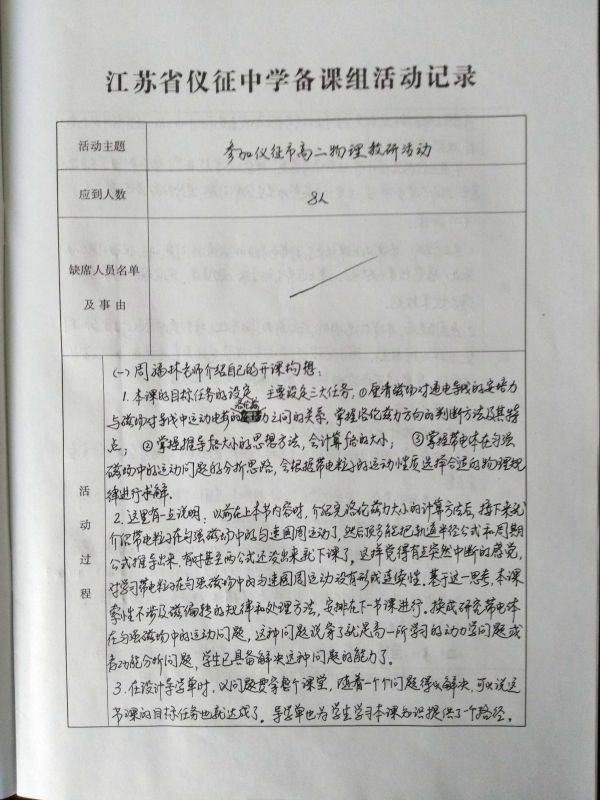 江苏省仪征中学备课组活动记录
活动主题
参加仪征市高二物理教研活动
应到人数
8人
缺席人员名单
及事由
活动过程
(一) 周福林老师介绍自己的开课构想:
1. 本课的目标任务的设定 主要设定三大任务, ①厘清磁场对通电导线的安培力
与磁场对导线中运动电荷的洛伦兹力之间的关系, 掌握洛伦兹力方向的判断方法及其特
点; ②掌握推导f洛大小的思想方法, 会计算f洛的大小; ③掌握带电体在匀强
磁场中的运动问题的分析思路, 会根据带电粒子的运动性质选择合适的物理规
律进行求解.
2. 这里有一点说明: 以前在上本节内容时, 介绍完洛伦兹力大小的计算方法后, 接下来就
介绍带电粒子在匀强磁场中的匀速圆周运动了, 然后顶多能把轨道半径公式和周期
公式推导出来, 有时甚至两公式还没出来就下课了。这样觉得有点突然中断的感觉,
对学习带电粒子在匀强磁场中的匀速圆周运动没有形成连续性, 基于这一思考, 本课
索性不涉及磁偏转的规律和处理方法, 安排在下一节课进行。换成研究带电体
在匀强磁场中的运动问题, 这种问题说穿了就是高一所学习的动力学问题或
者功能分析问题, 学生已具备解决这种问题的能力了。
3. 在设计导学单时, 以问题贯穿整个课堂, 随着一个个问题得以解决, 可以说这
节课的目标任务也就达成了。导学单也为学生学习本课知识提供了一个路径。